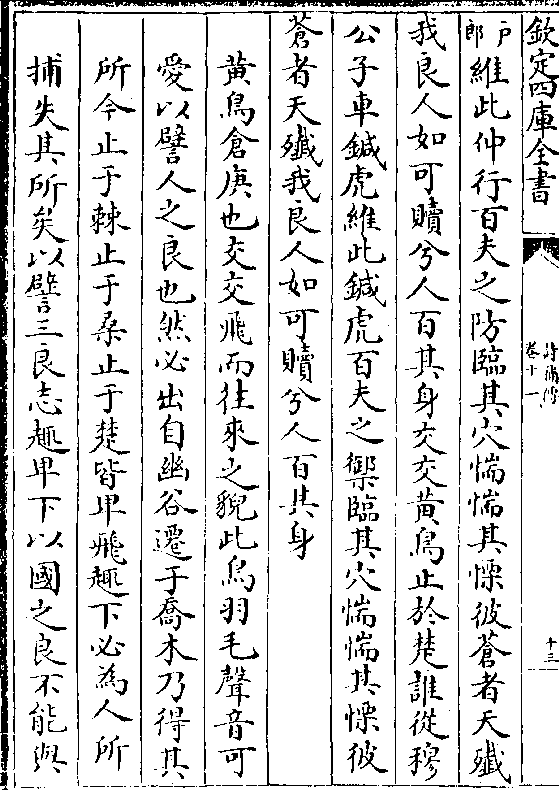 欽定四庫全書
詩補傳
卷十一
十三
戶
郎
維此仲行百夫之防臨其穴惴惴其慄彼蒼者天殲
我良人如可贖兮人百其身交交黃鳥止於楚誰從穆
公子車鍼虎維此鍼虎百夫之禦臨其穴惴惴其慄彼
蒼者天殲我良人如可贖兮人百其身
黃鳥倉庚也交交飛而往來之貌此鳥羽毛聲音可
愛以譬人之良也然必出自幽谷遷于喬木乃得其
所今止于棘止于桑止于楚皆卑飛趣下必為人所
捕失其所矣以譬三良志趣卑下以國之良不能與